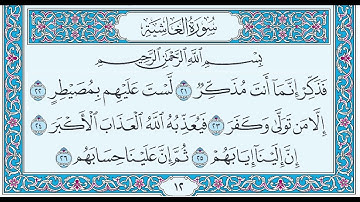 سُورَةُ الغَاشِيَةِ
بِسْمِ اللَّهِ الرَّحْمَٰنِ الرَّحِيمِ
فَذَكِّرْ إِنَّمَا أَنتَ مُذَكِّرٌ ٢١ لَّسْتَ عَلَيْهِم بِمُصَيْطِرٍ ٢٢
إِلَّا مَن تَوَلَّىٰ وَكَفَرَ ٢٣ فَيُعَذِّبُهُ اللَّهُ الْعَذَابَ الْأَكْبَرَ ٢٤
إِنَّ إِلَيْنَا إِيَابَهُمْ ٢٥ ثُمَّ إِنَّ عَلَيْنَا حِسَابَهُم ٢٦
١٢